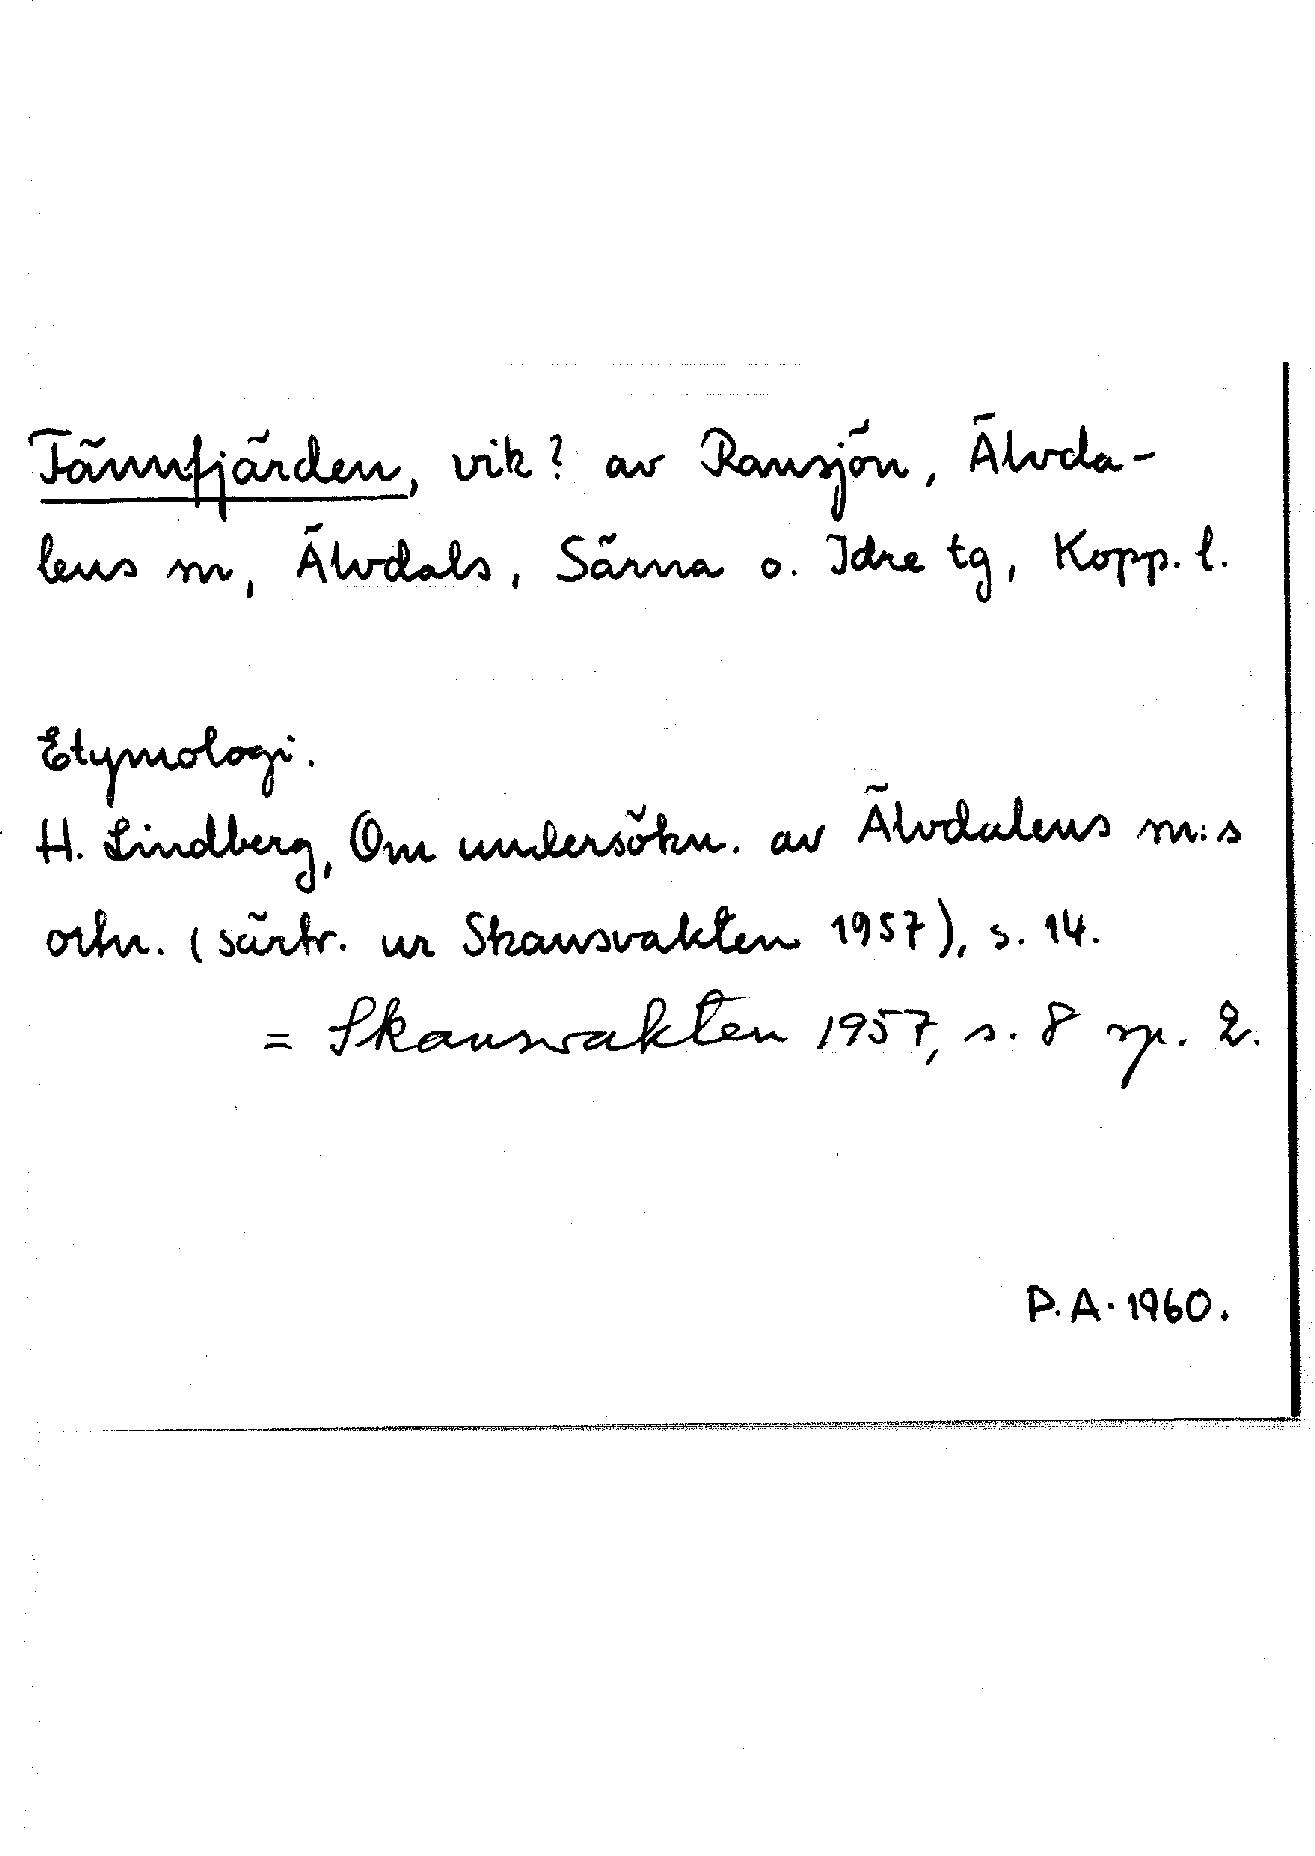 Tännfjärden, vik? av Ransjön, Älvda-
lens m, Älvdals, Särna o. Idre tg, Kopp. l.
Etymologi.
H. Lindberg, Om undersökn. av Älvdalens m:s
ortn. (särtr. ur Skansvakten 1957), s. 14.
= Skansvakten 1957, s. 8 sp. 2.
P.A. 1960.